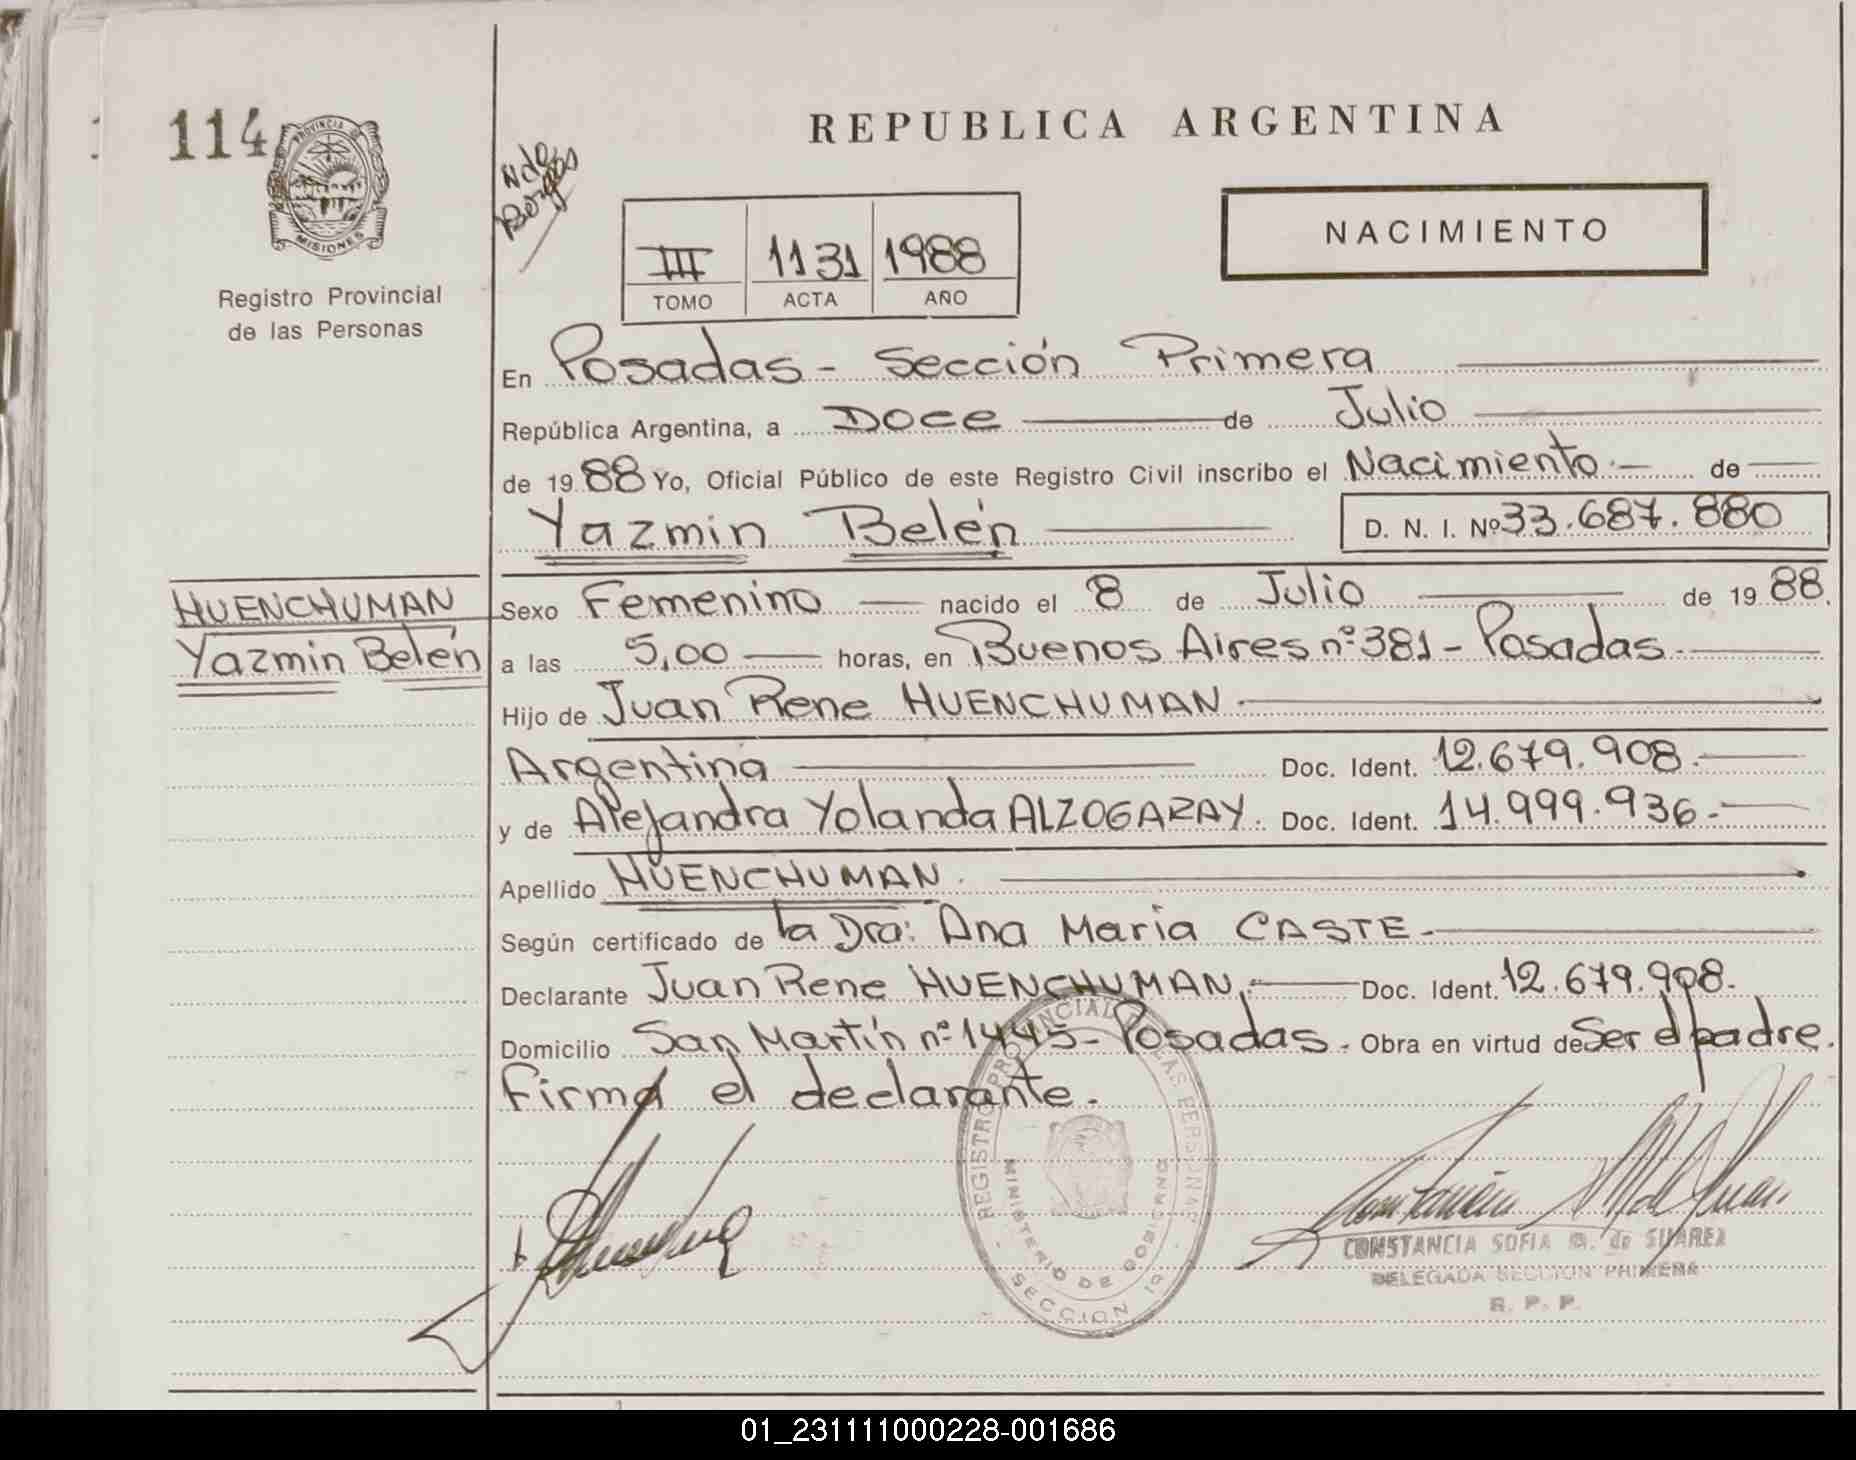 114
PROVINCIA DE
MISIONES
Registro Provincial
de las Personas
REPUBLICA ARGENTINA
NACIMIENTO
III 1131 1988
TOMO ACTA AÑO
En Posadas - Sección Primera
República Argentina, a Doce de Julio
de 1988 Yo, Oficial Público de este Registro Civil inscribo el Nacimiento.- de
Yazmin Belén D. N. I. Nº 33.687.880
HUENCHUMAN
Yazmin Belén
Sexo Femenino nacido el 8 de Julio de 1988.
a las 5,00 horas, en Buenos Aires nº 381 - Posadas.
Hijo de Juan Rene HUENCHUMAN
Argentina Doc. Ident. 12.679.908.
y de Alejandra Yolanda ALZOGARAY. Doc. Ident. 14.999.936.-
Apellido HUENCHUMAN.
Según certificado de la Dra: Ana Maria CASTE.
Declarante Juan Rene HUENCHUMAN, Doc. Ident. 12.679.908.
Domicilio San Martín nº 1445 - Posadas. Obra en virtud de Ser el padre.
Firma el declarante.
REGISTRO PROVINCIAL DE LAS PERSONAS
MINISTERIO DE GOBIERNO
SECCION 1º
CONSTANCIA SOFIA M. de SUAREZ
DELEGADA SECCION PRIMERA
R. P. P.
01_231111000228-001686